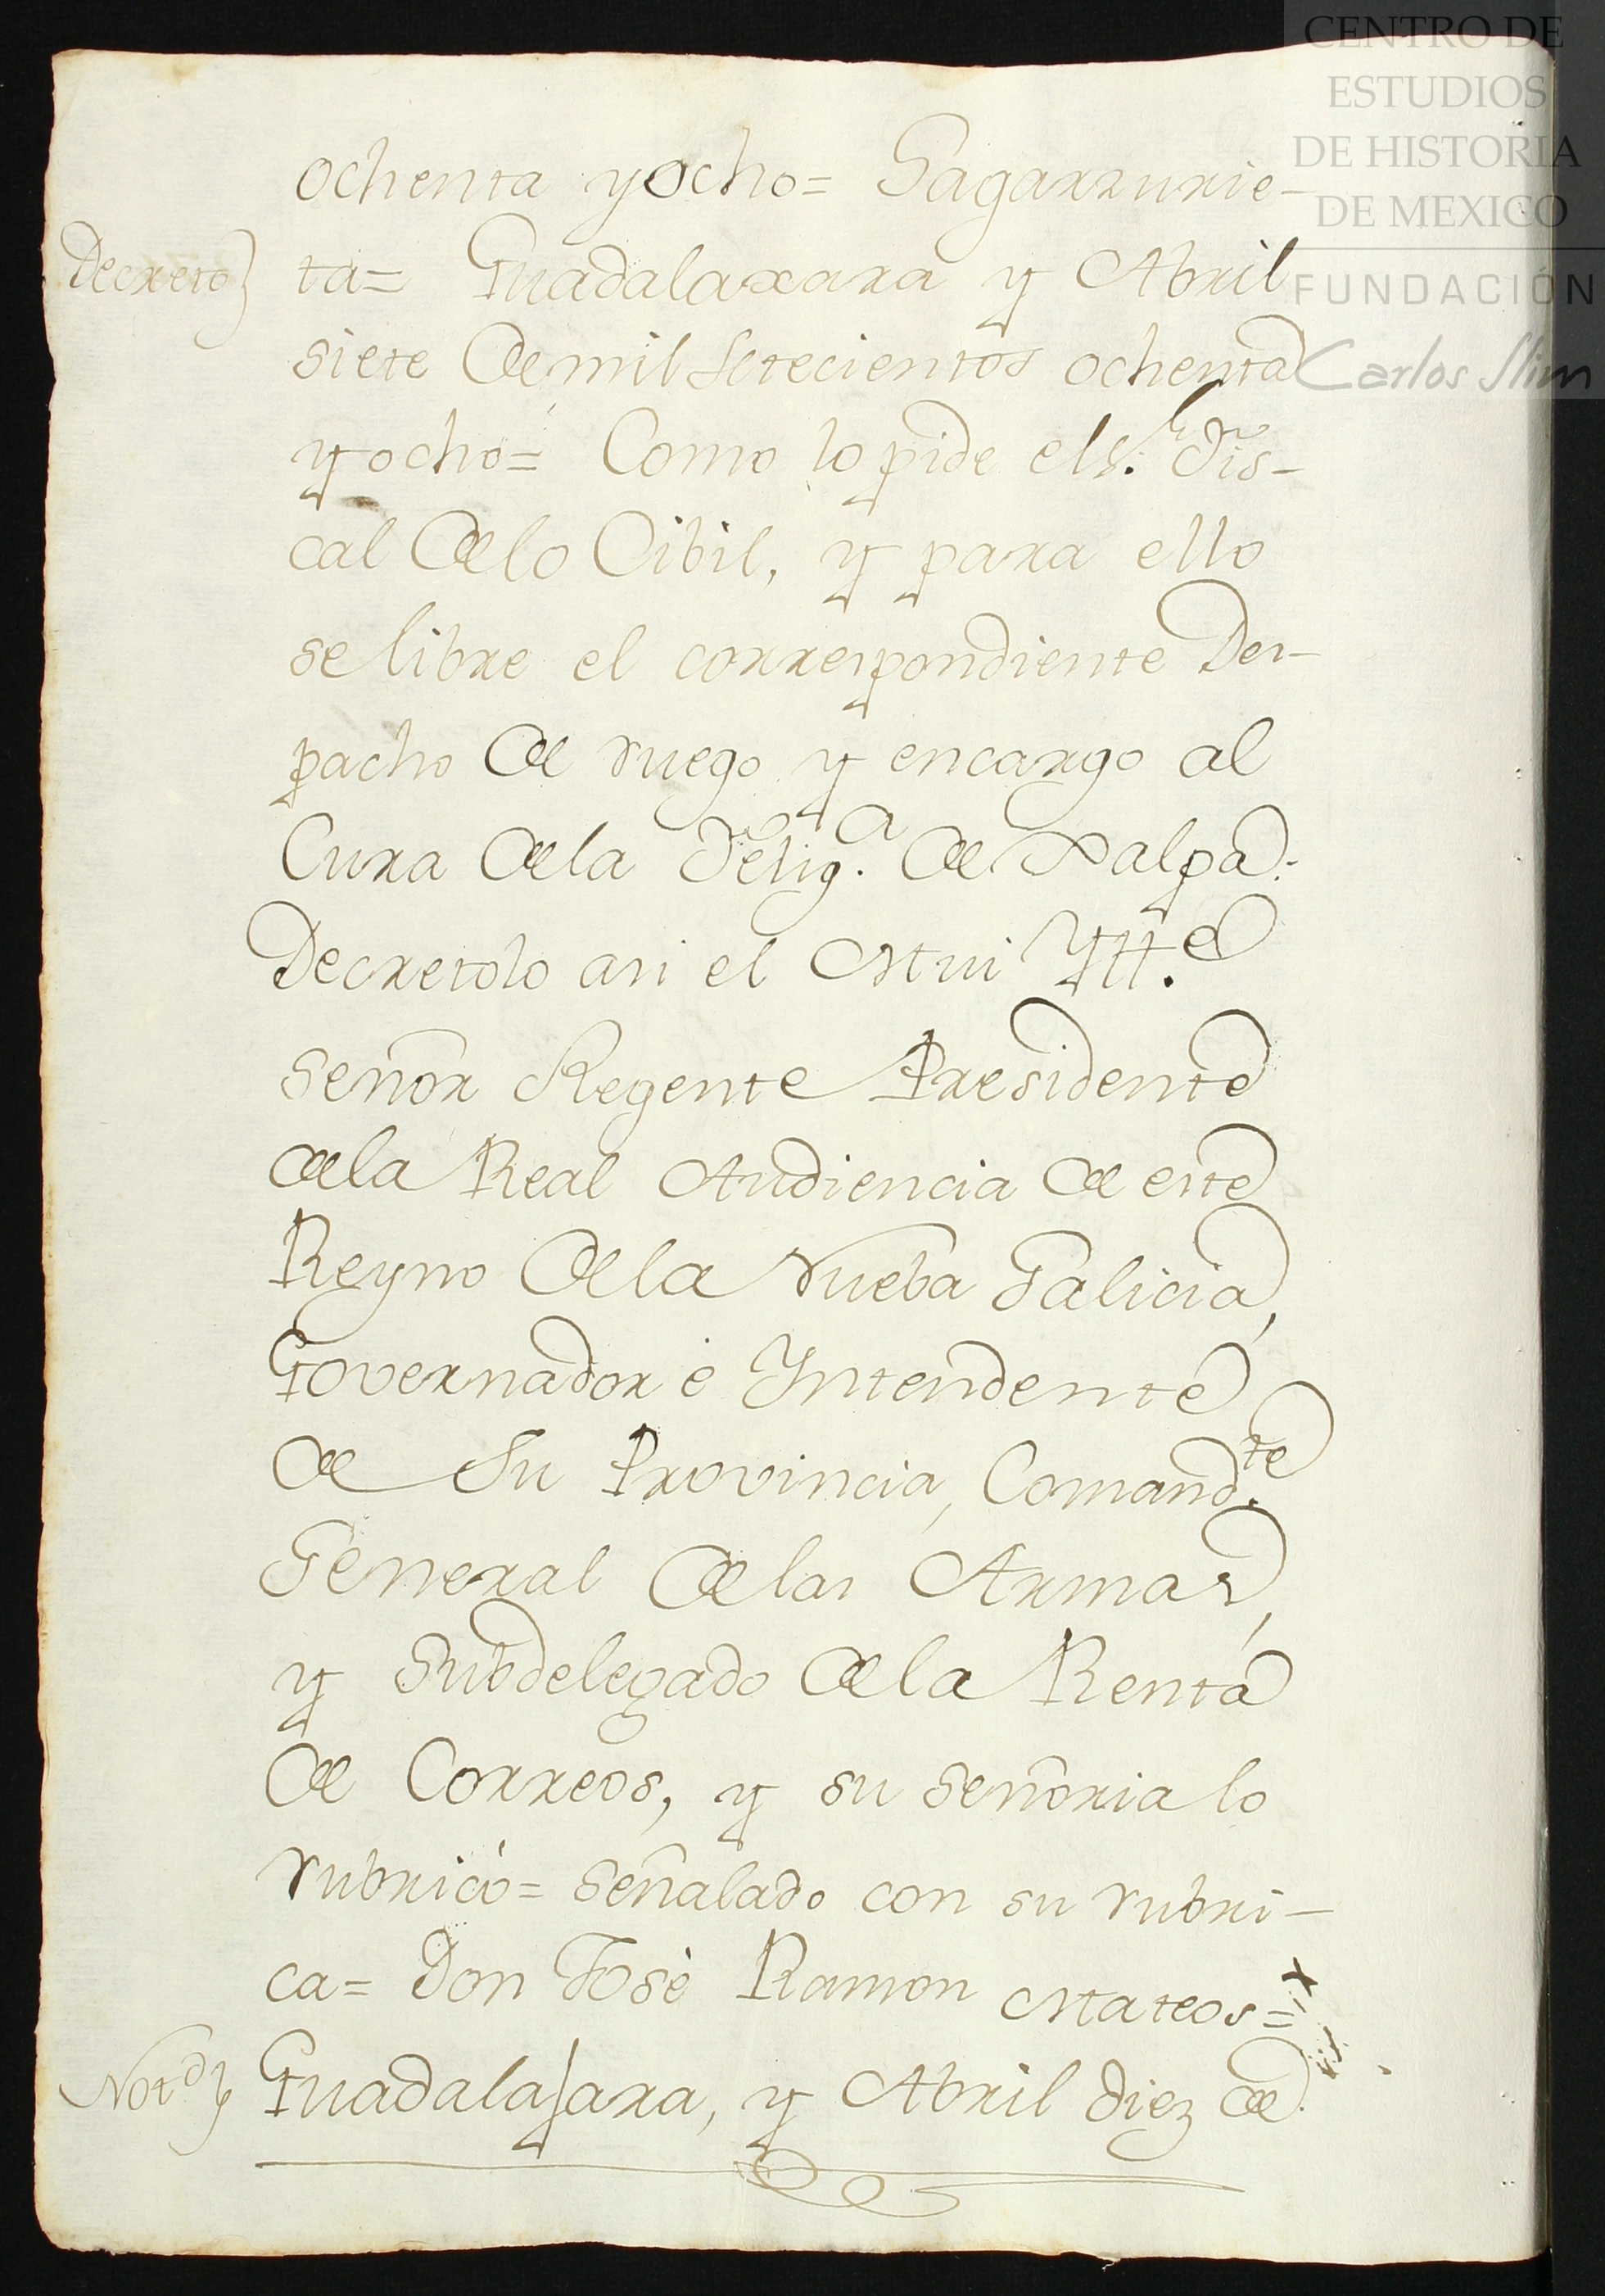 CENTRO DE
ESTUDIOS
DE HISTORIA
DE MEXICO
FUNDACIÓN
Carlos Slim
ochenta y ocho= Sagarzurie-
Decreto} ta= Guadalaxara y Abril
siete de mil Setecientos ochenta
y ocho= Como lo pide el s.r Fis-
cal de lo Cibil, y para ello
se libre el correspondiente Des-
pacho de ruego y encargo al
Cura de la Felig.a de Xalpa:
Decretolo asi el Mui Ytt.e
señor Regente Presidente
de la Real Audiencia de este
Reyno de la Nueba Galicia,
Governador é Intendente
de Su Provincia, Comand.te
General de las Armas,
y Subdelegado de la Renta
de Correos, y su señoria lo
rubricó= señalado con su rubri-
ca= Don Josè Ramon Mateos=
Guadalajara, y Abril diez de